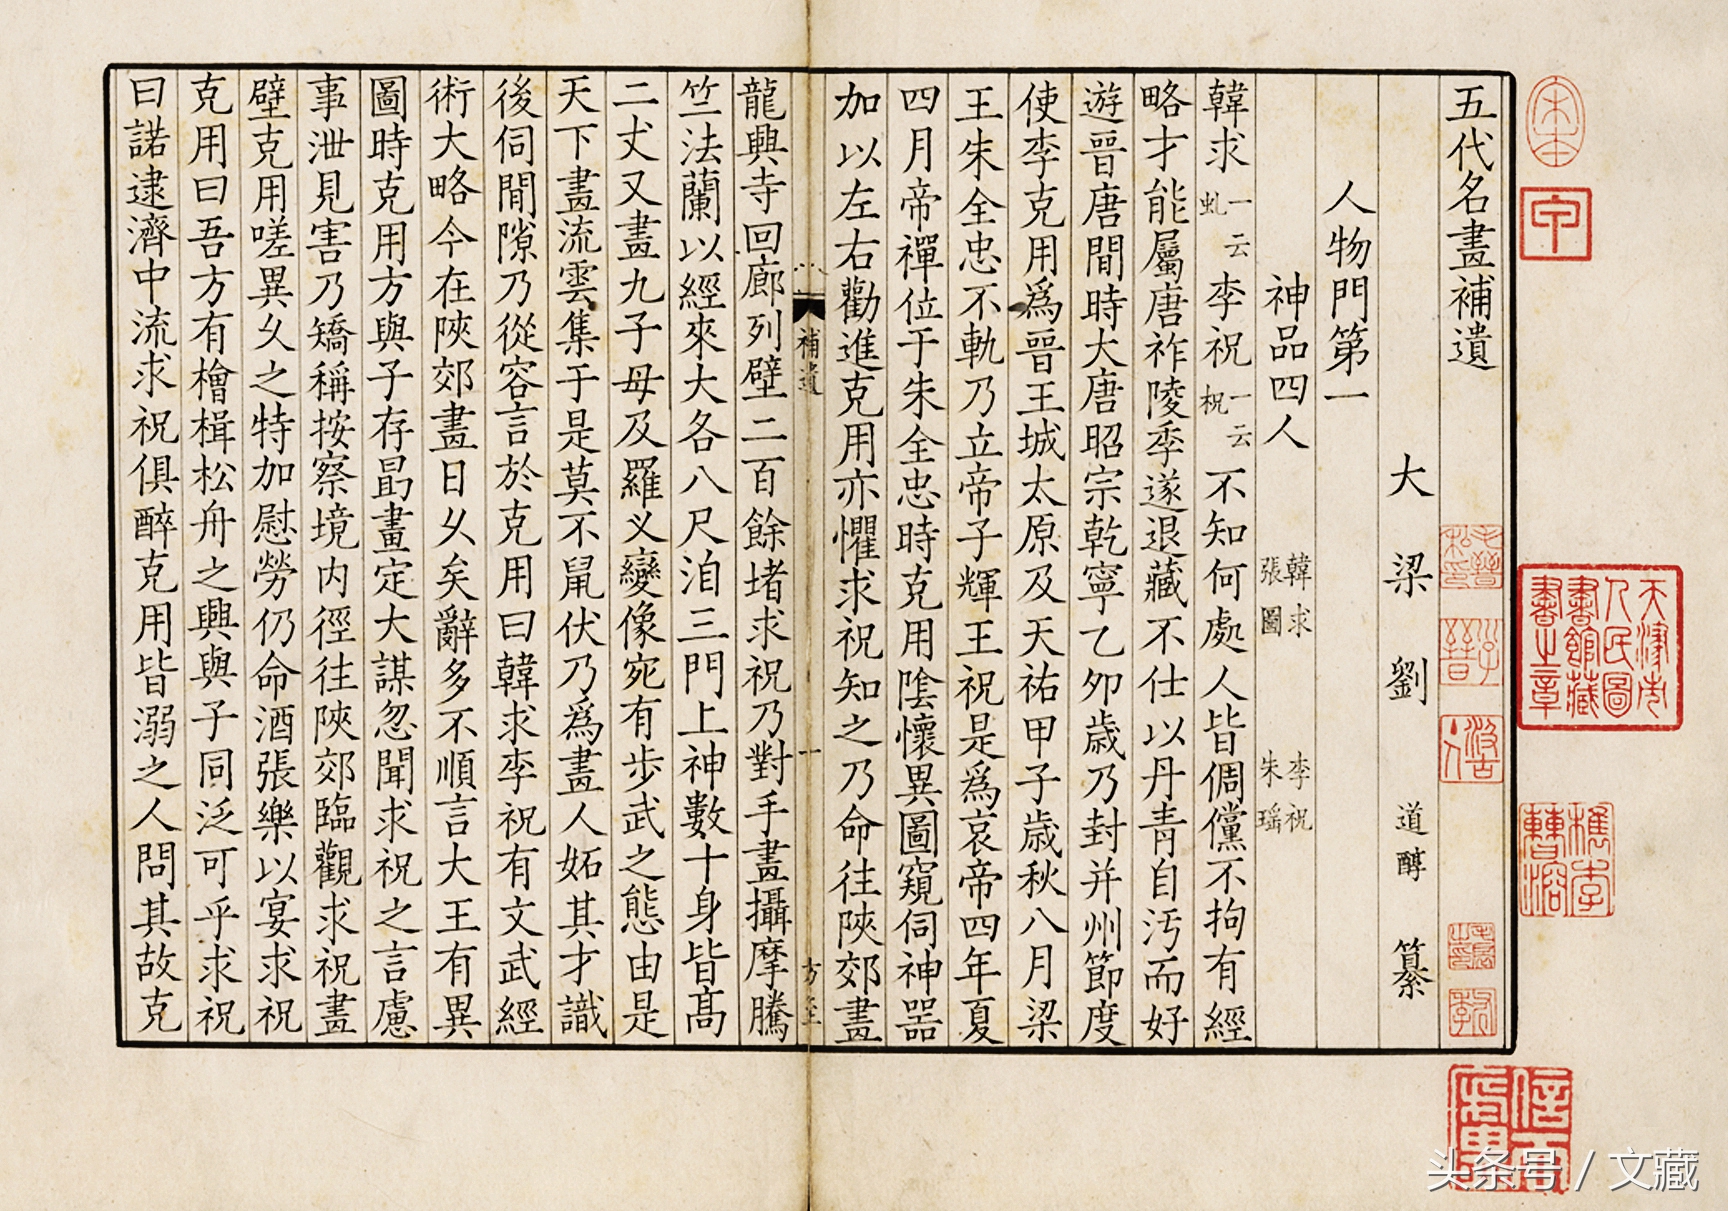 五代名畫補遺
大梁劉道醇纂
人物門第一
神品四人 韓求 李祝 張圖 朱瑶
韓求一云虬李祝一云柷不知何處人皆倜儻不拘有經
略才能屬唐祚陵季遂退藏不仕以丹青自汚而好
遊晉唐間時大唐昭宗乾寧乙夘歳乃封并州節度
使李克用爲晉王城太原及天祐甲子歳秋八月梁
王朱全忠不軌乃立帝子輝王祝是爲哀帝四年夏
四月帝禪位于朱全忠時克用陰懷異圖窺伺神器
加以左右勸進克用亦懼求祝知之乃命往陜郊畫
補遺
一
龍興寺回廊列壁二百餘堵求祝乃對手畫攝摩騰
竺法蘭以經來大各八尺洎三門上神數十身皆髙
二丈又畫九子母及羅义變像宛有步武之態由是
天下畫流雲集于是莫不䑕伏乃爲畫人妬其才識
後伺間隙乃從容言於克用曰韓求李祝有文武經
術大略今在陜郊畫日乆矣辭多不順言大王有異
圖時克用方與子存勗畫定大謀忽聞求祝之言慮
事泄見害乃矯稱按察境内徑往陜郊臨觀求祝畫
壁克用嗟異乆之特加慰勞仍命酒張樂以宴求祝
克用曰吾方有檜楫松舟之興與子同泛可乎求祝
曰諾逮濟中流求祝俱醉克用皆溺之人問其故克
天津市人民圖書館藏書之章
头条号 / 文藏